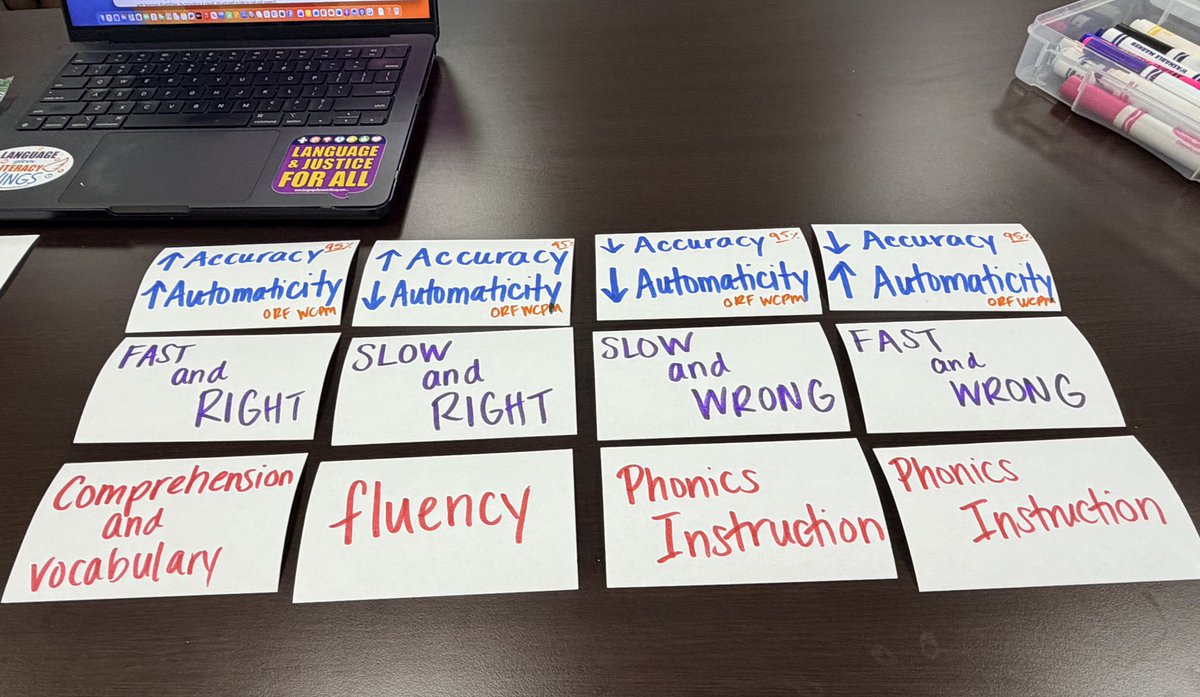 LANGUAGE
LITERACY
WINGS
LANGUAGE
& JUSTICE
FOR ALL
↑ Accuracy 95%
↑ Automaticity
ORF WCPM
↑ Accuracy 95%
↓ Automaticity
ORF WCPM
↓ Accuracy 95%
↓ Automaticity
ORF WCPM
↓ Accuracy 95%
↑ Automaticity
ORF WCPM
FAST
and
RIGHT
SLOW
and
RIGHT
SLOW
and
WRONG
FAST
and
WRONG
Comprehension
and
vocabulary
fluency
Phonics
Instruction
Phonics
Instruction
WASHABLE MARKER